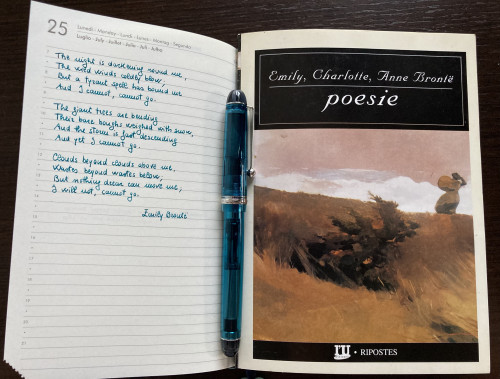 25
Luglio - July - Juillet - Julio - Juli - Julho
The night is darkening round me,
The wild winds coldly blow,
But a tyrant spell has bound me
And I cannot, cannot go.
The giant trees are bending
Their bare boughs weighed with snow,
And the storm is fast descending
And yet I cannot go.
Clouds beyond clouds above me,
Wastes beyond wastes below,
But nothing drear can move me,
I will not, cannot go.
Emily Brontë
Emily, Charlotte, Anne Brontë
poesie
RIPOSTES